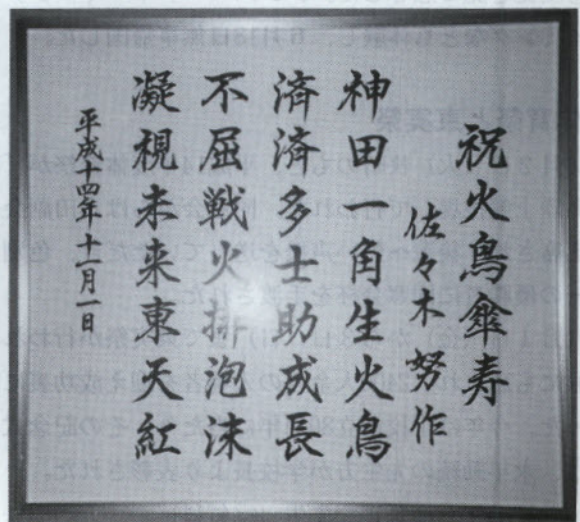 祝火鳥傘寿
佐々木努作
神田一角生火鳥
済済多士助成長
不屈戦火排泡沫
凝視未来東天紅
平成十四年十一月一日